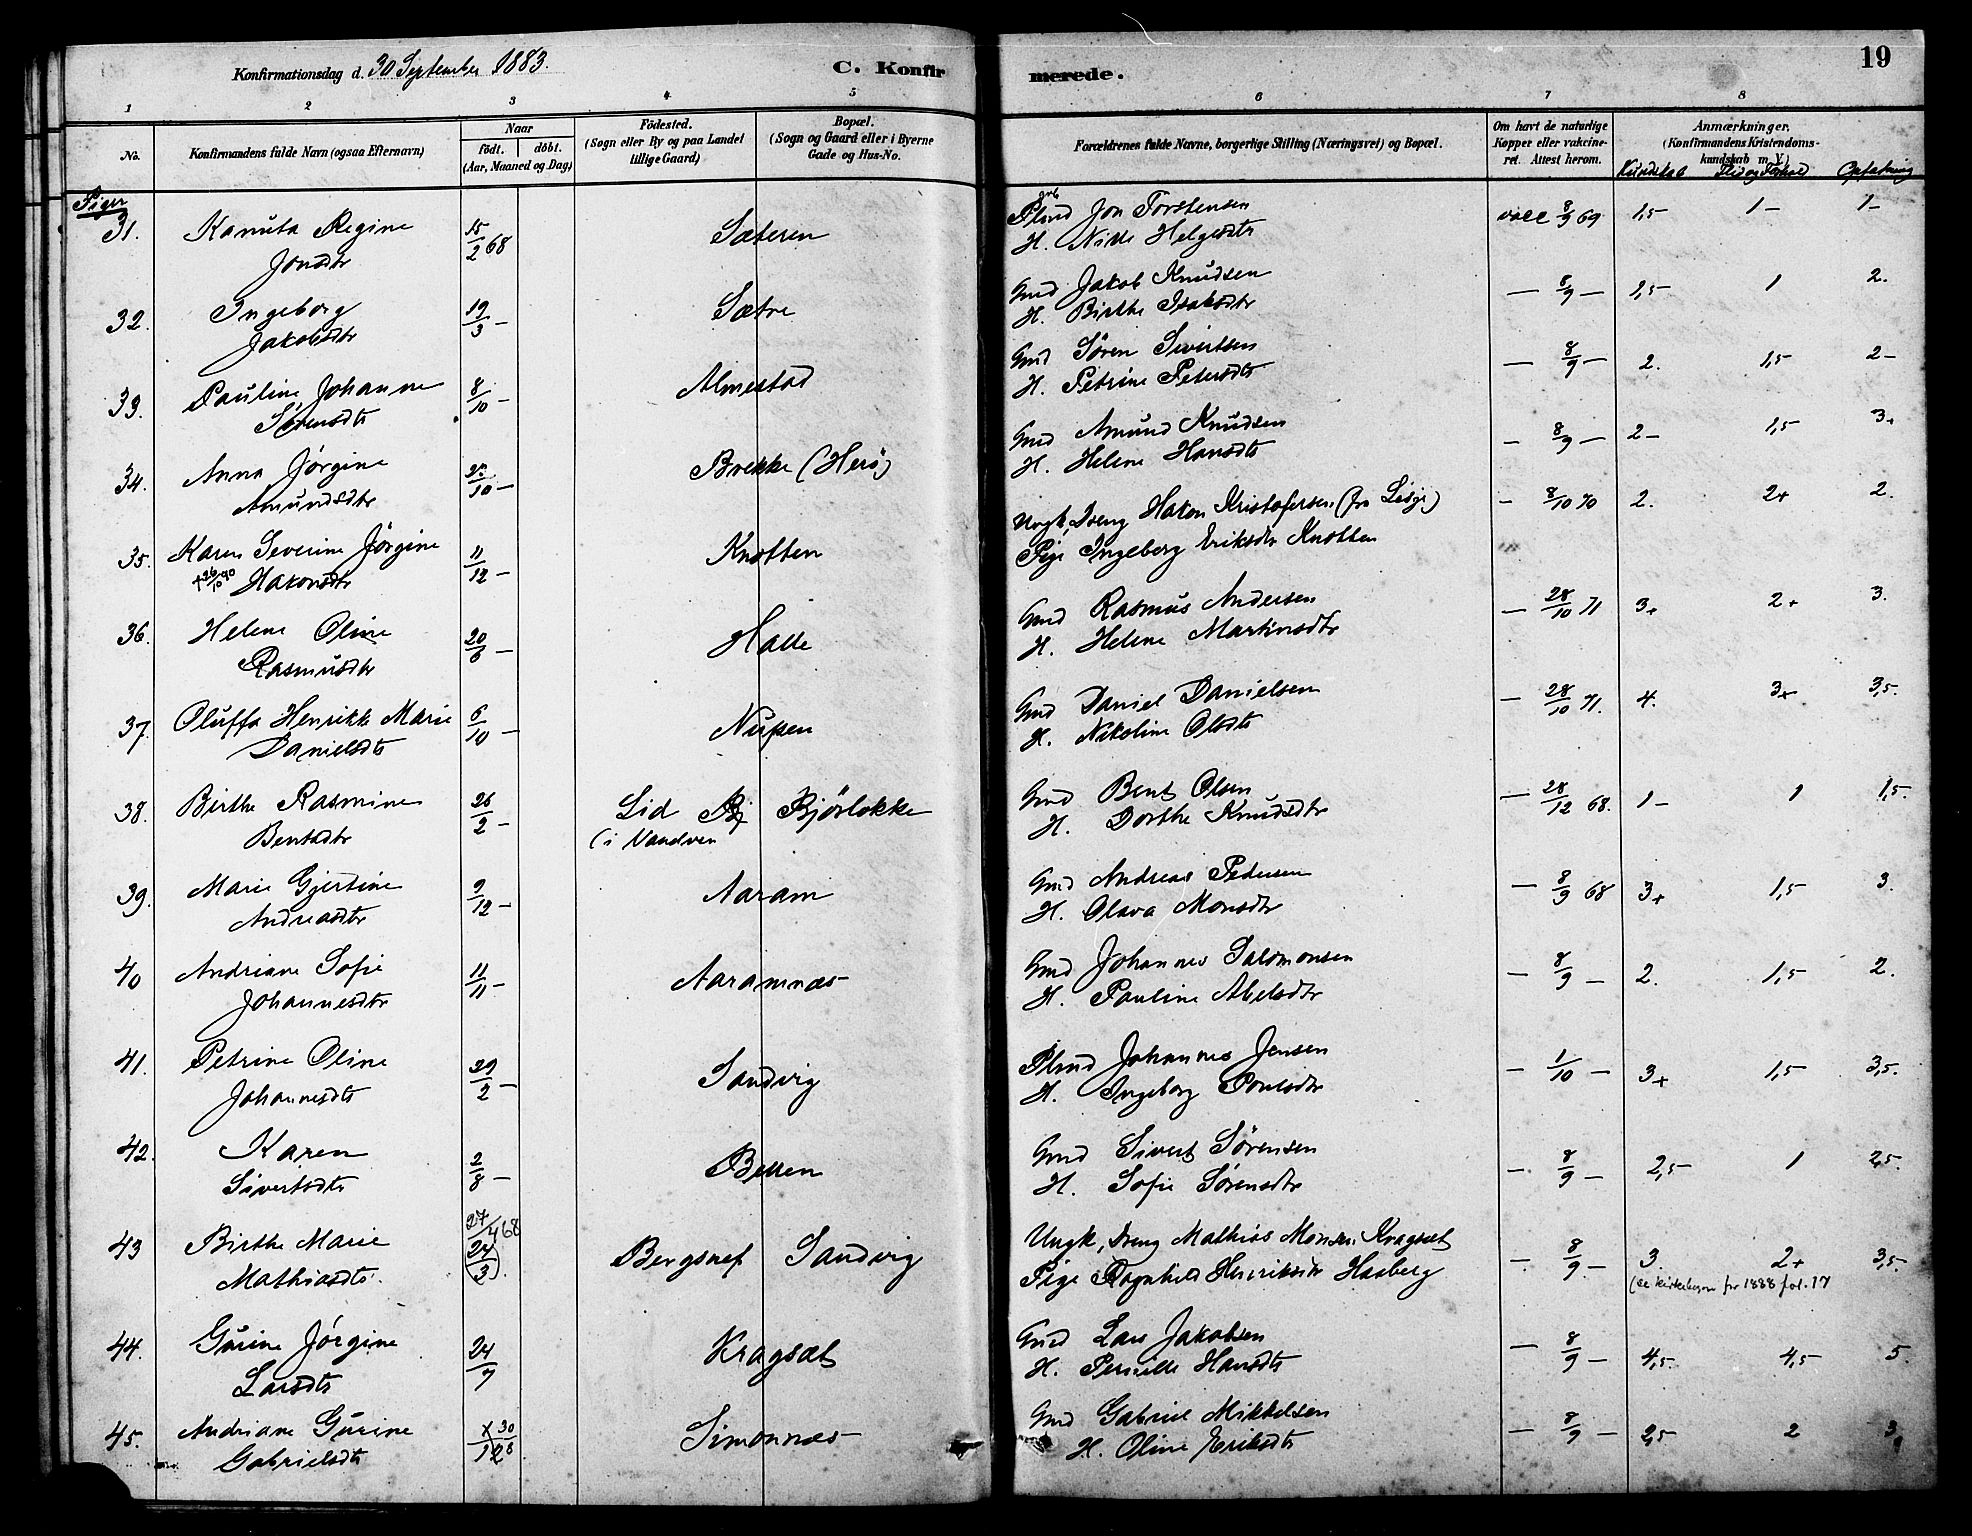 Konfirmationsdag d. 30 September 1883.
C. Konfirmerede.
19
1 2 3 4 5 6 7 8
No.
Konfirmandens fulde Navn (ogsaa Efternavn)
Naar
födt. döbt.
(Aar, Maaned og Dag)
Födested.
(Sogn eller By og paa Landet tillige Gaard)
Bopæl.
(Sogn og Gaard eller i Byerne Gade og Hus-No.
Forældrenes fulde Navne, borgerlige Stilling (Næringsvei) og Bopæl.
Om havt de naturlige Kopper eller vakcineret. Attest herom.
Anmærkninger.
(Konfirmandens Kristendomskundskab m. V.)
Kundskab Flid og Forhold Opfatning
Piger
31. Kanuta Regine Jonsdtr 15/2 68 Sæteren Plmd Jon Torstensen H. Nille Helgesdtr vacc 8/9 69 1,5 1- 1-
32. Ingeborg Jakobsdtr 19/3 - Sætre Gmd Jakob Knudsen H. Birthe Isaksdtr - 8/9 - 1,5- 1 2.
33. Pauline Johanne Sørensdtr 8/10 - Almestad Gmd Søren Sivertsen H. Petrine Petersdtr - 8/9 - 2. 1,5 2-
34. Anna Jørgine Amundsdtr /10 - Brekke (Herö) Gmd Amund Knudsen H. Helene Hansdtr - 8/9 - 2- 1,5 3+
35. Karen Severine Jørgine Hakonsdtr +26/10 90 11/12 - Knotten Ungk, Dreng Hakon Kristofersen (fra Lesje) Pige Ingeborg Eriksdtr Knotten - 8/10 70 2. 2+ 2.
36. Helene Oline Rasmusdtr 20/6 - Halle Gmd Rasmus Andersen H. Helene Martinusdtr - 28/10 71 3+ 2+ 3.
37. Oluffa Henrikke Marie Danielsdtr 6/10 - Nupen Gmd Daniel Danielsen H. Nikoline Olsdtr - 28/10 71. 4. 3+ 3,5.
38. Birthe Rasmine Bentsdtr 26/2 - Lid (i Vandven Bjørlokke Gmd Bent Olsen H. Dorthe Knudsdtr - 28/12 68. 1- 1 1,5.
39. Marie Gjertine Andreasdtr 9/12 - Aaram Gmd Andreas Pedersen H. Olava Monsdtr - 8/9 68 3+ 1,5 3.
40 Andriane Sofie Johannesdtr 11/11 - Aaramnæs Gmd Johannes Salomonsen H. Pauline Abelsdtr - 8/9 - 2. 1,5 2.
41. Petrine Oline Johannesdtr 29/2 - Sandvig Plmd Johannes Jensen H. Ingeborg Poulsdtr - 1/10 - 3+ 1,5 3,5.
42. Karen Sivertsdtr 2/8 - Berren Gmd Sivert Sørensen H. Sofie Sørensdtr - 8/9 - 2,5- 1 2,5.
43 Birthe Marie Mathiasdtr. 27/4 68 (24/3). Bergsnef Sandvig Ungk, Dreng Mathias Monsen Kragsæt Pige Ragnhild Henriksdtr Hasberg - 8/9 - 3. 2+ 3,5.
(se kirkebogen for 1888 fol. 17
44. Gurine Jørgine Larsdtr 24/7 Kragsæt Gmd Lars Jakobsen H. Pernille Hansdtr - 8/9 - 4,5. 4,5 5.
45. Andriane Gurine Gabrielsdtr 30/8 Simonnæs Gmd Gabriel Mikkelsen H. Oline Eriksdtr - 8/9 - 2,5 2 3